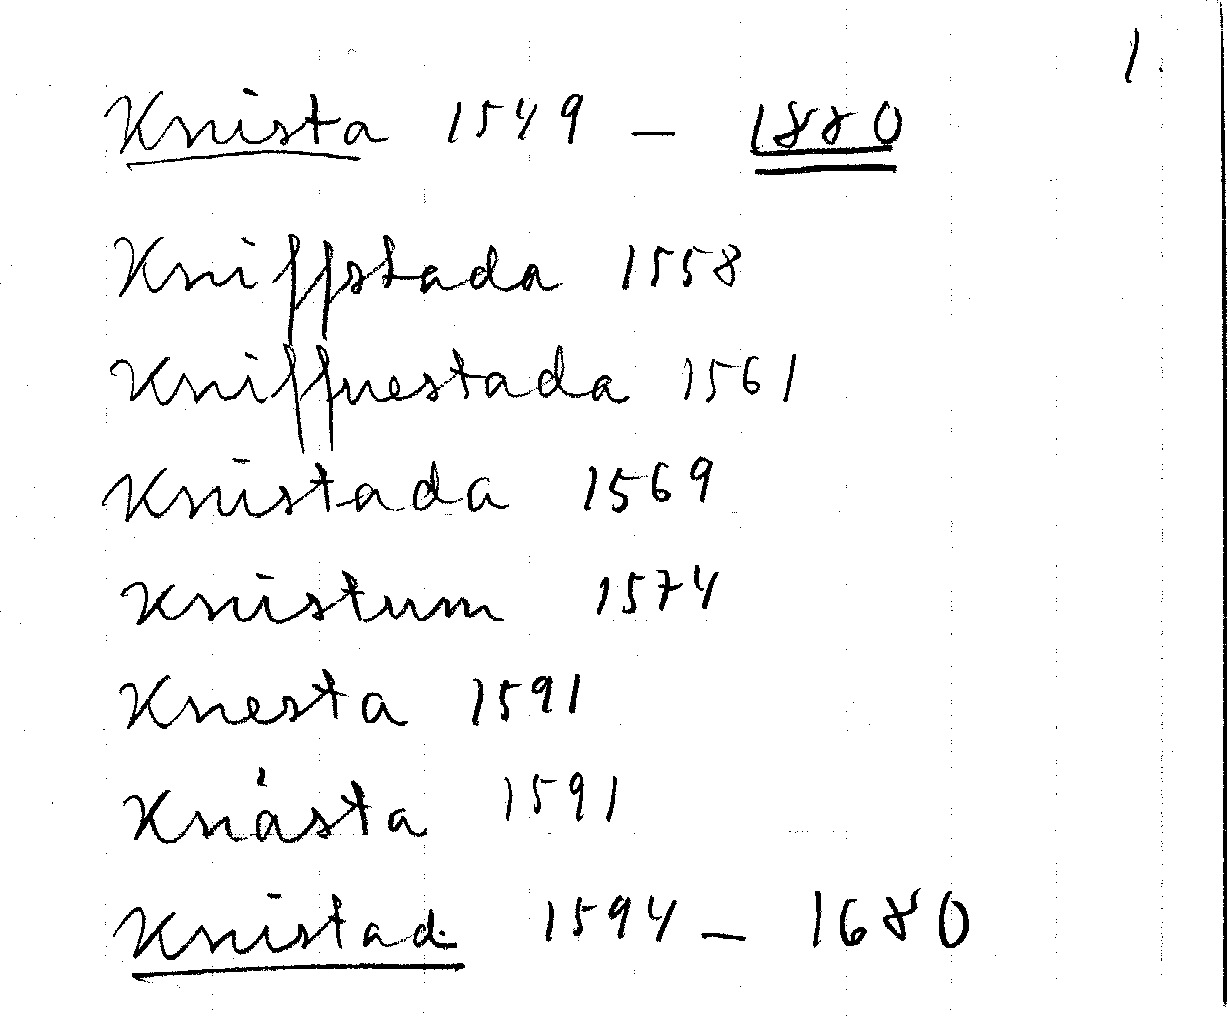 1.
Knista 1549 – 1880
Kniffstada 1558
Kniffuestada 1561
Knistada 1569
Knistum 1574
Knesta 1591
Knästa 1591
Knistad 1594 – 1680